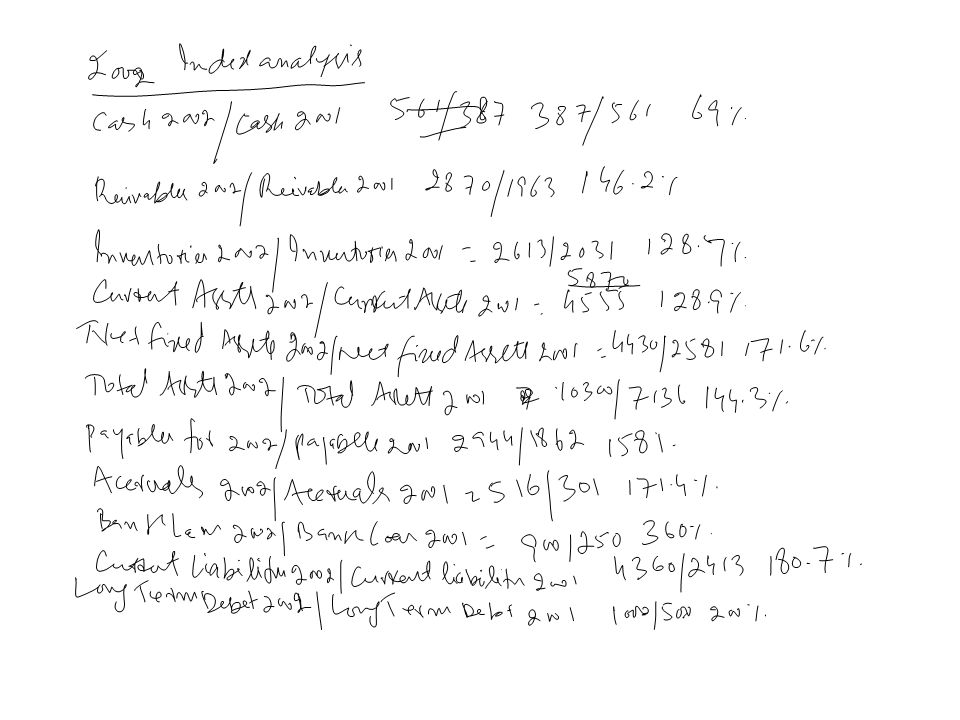 2002 Index analysis
Cash 2002/Cash 2001 561/387 387/561 69%
Reivables 2002/Reivables 2001 2870/1963 146.2%
Inventories 2002/Inventories 2001 = 2613/2031 128.7%
Current Assets 2002/Current Assets 2001 = 5870/4555 128.9%
Net fixed Assets 2002/net fixed Assets 2001 = 4430/2581 171.6%
Total Assets 2002/Total Assets 2001 10300/7136 144.3%
Payables for 2002/payable 2001 2944/1862 158%
Accruals 2002/Accruals 2001 = 516/301 171.4%
Bank Loan 2002/Bank Loan 2001 = 900/250 360%
Current Liabilities 2002/Current liabilities 2001 4360/2413 180.7%
Long Term Debet 2002/Long Term Debt 2001 1000/500 200%